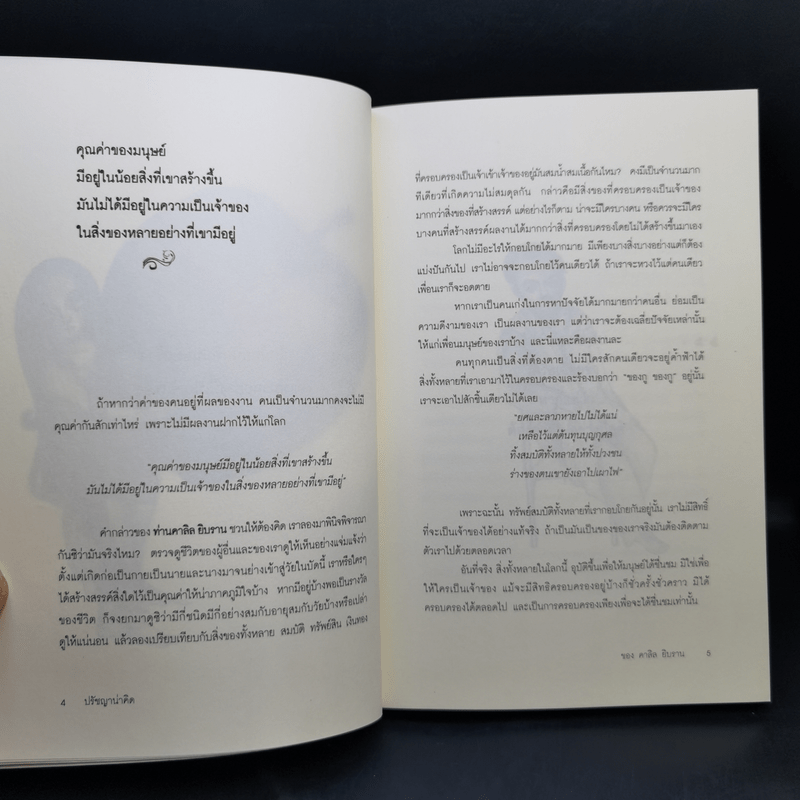 คุณค่าของมนุษย์
มีอยู่ในน้อยสิ่งที่เขาสร้างขึ้น
มันไม่ได้มีอยู่ในความเป็นเจ้าของ
ในสิ่งของหลายอย่างที่เขามีอยู่
ถ้าหากว่าค่าของคนอยู่ที่ผลของงาน คนเป็นจำนวนมากคงจะไม่มี
คุณค่ากันสักเท่าไหร่ เพราะไม่มีผลงานฝากไว้ให้แก่โลก
"คุณค่าของมนุษย์มีอยู่ในน้อยสิ่งที่เขาสร้างขึ้น
มันไม่ได้มีอยู่ในความเป็นเจ้าของในสิ่งของหลายอย่างที่เขามีอยู่"
คำกล่าวของ ท่านคาลิล ยิบราน ชวนให้ต้องคิด เราลองมาพินิจพิจารณา
กันซิว่ามันจริงไหม? ตรวจดูชีวิตของผู้อื่นและของเราดูให้เห็นอย่างแจ่มแจ้งว่า
ตั้งแต่เกิดก่อเป็นกายเป็นนายและนางมาจนย่างเข้าสู่วัยในบัดนี้ เราหรือใครๆ
ได้สร้างสรรค์สิ่งใดไว้เป็นคุณค่าให้น่าภาคภูมิใจบ้าง หากมีอยู่บ้างพอเป็นรางวัล
ของชีวิต ก็จงยกมาดูซิว่ามีกี่ชนิดมีกี่อย่างสมกับอายุสมกับวัยบ้างหรือเปล่า
ดูให้แน่นอน แล้วลองเปรียบเทียบกับสิ่งของทั้งหลาย สมบัติ ทรัพย์สิน เงินทอง
4 ปรัชญาน่าคิด
ที่ครอบครองเป็นเจ้าเข้าเจ้าของอยู่มันสมน้ำสมเนื้อกันไหม? คงมีเป็นจำนวนมาก
ทีเดียวที่เกิดความไม่สมดุลกัน กล่าวคือมีสิ่งของที่ครอบครองเป็นเจ้าของ
มากกว่าสิ่งของที่สร้างสรรค์ แต่อย่างไรก็ตาม น่าจะมีใครบางคน หรือควรจะมีใคร
บางคนที่สร้างสรรค์ผลงานได้มากกว่าสิ่งที่ครอบครองโดยไม่ได้สร้างขึ้นมาเอง
โลกไม่มีอะไรให้กอบโกยได้มากมาย มีเพียงบางสิ่งบางอย่างแต่ก็ต้อง
แบ่งปันกันไป เราไม่อาจจะกอบโกยไว้คนเดียวได้ ถ้าเราจะหวงไว้แต่คนเดียว
เพื่อนเราก็จะอดตาย
หากเราเป็นคนเก่งในการหาปัจจัยได้มากมายกว่าคนอื่น ย่อมเป็น
ความดีงามของเรา เป็นผลงานของเรา แต่ว่าเราจะต้องเฉลี่ยปัจจัยเหล่านั้น
ให้แก่เพื่อนมนุษย์ของเราบ้าง และนี่แหละคือผลงานละ
คนทุกคนเป็นสิ่งที่ต้องตาย ไม่มีใครสักคนเดียวจะอยู่ค้ำฟ้าได้
สิ่งทั้งหลายที่เราเอามาไว้ในครอบครองและร้องบอกว่า "ของกู ของกู" อยู่นั้น
เราจะเอาไปสักชิ้นเดียวไม่ได้เลย
"ยศและลาภหายไปไม่ได้แน่
เหลือไว้แต่ต้นทุนบุญกุศล
ทิ้งสมบัติทั้งหลายให้ทั้งปวงชน
ร่างของตนเขายังเอาไปเผาไฟ"
เพราะฉะนั้น ทรัพย์สมบัติทั้งหลายที่เรากอบโกยกันอยู่นั้น เราไม่มีสิทธิ์
ที่จะเป็นเจ้าของได้อย่างแท้จริง ถ้าเป็นมันเป็นของของเราจริงมันต้องติดตาม
ตัวเราไปด้วยตลอดเวลา
อันที่จริง สิ่งทั้งหลายในโลกนี้ อุบัติขึ้นเพื่อให้มนุษย์ได้ชื่นชม มิใช่เพื่อ
ให้ใครเป็นเจ้าของ แม้จะมีสิทธิครอบครองอยู่บ้างก็ชั่วครั้งชั่วคราว มิได้
ครอบครองได้ตลอดไป และเป็นการครอบครองเพียงเพื่อจะได้ชื่นชมเท่านั้น
ของ คาลิล ยิบราน 5